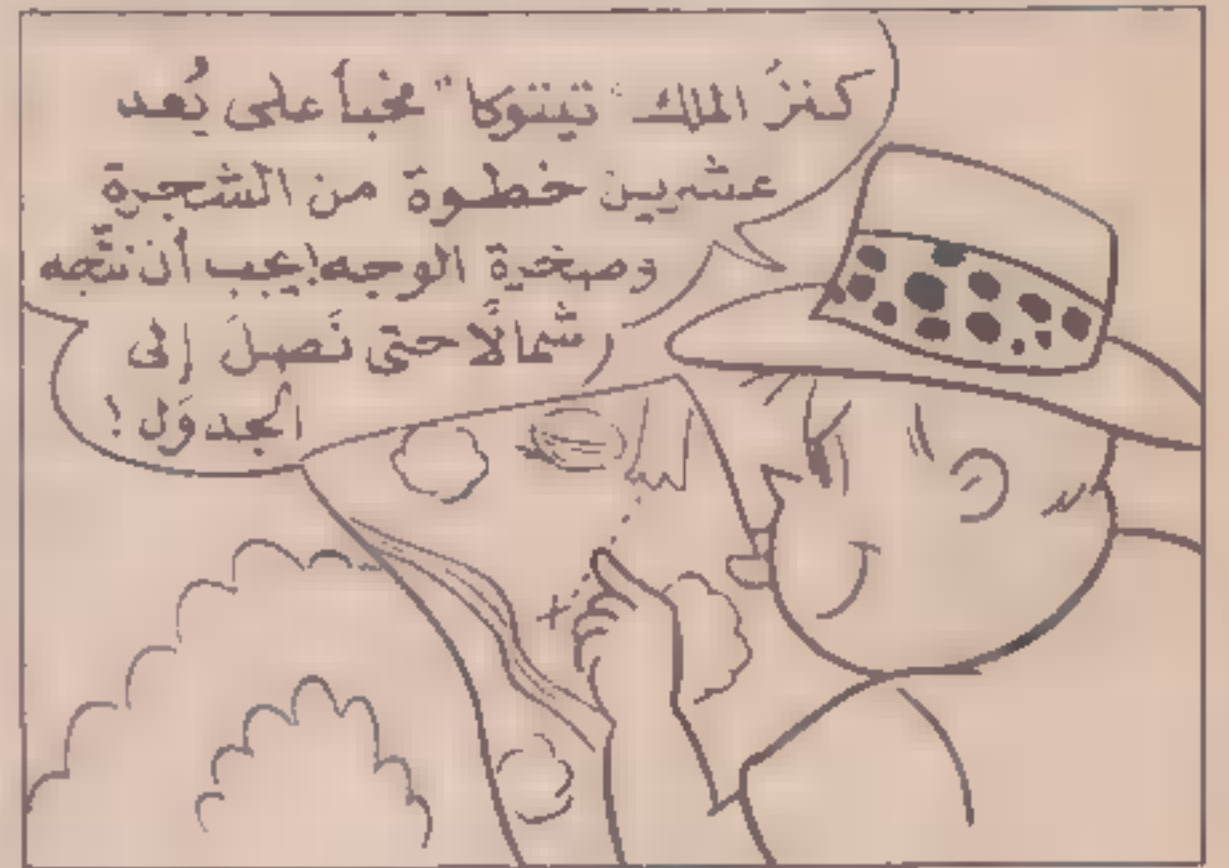 كنزُ الملك "تيتوكا" مخبأ على بُعد
عشرين خطوة من الشجرة
وصخرة الوجه! يجب أن نتَّجه
شمالًا حتى نَصِلَ إلى
الجدوَل!